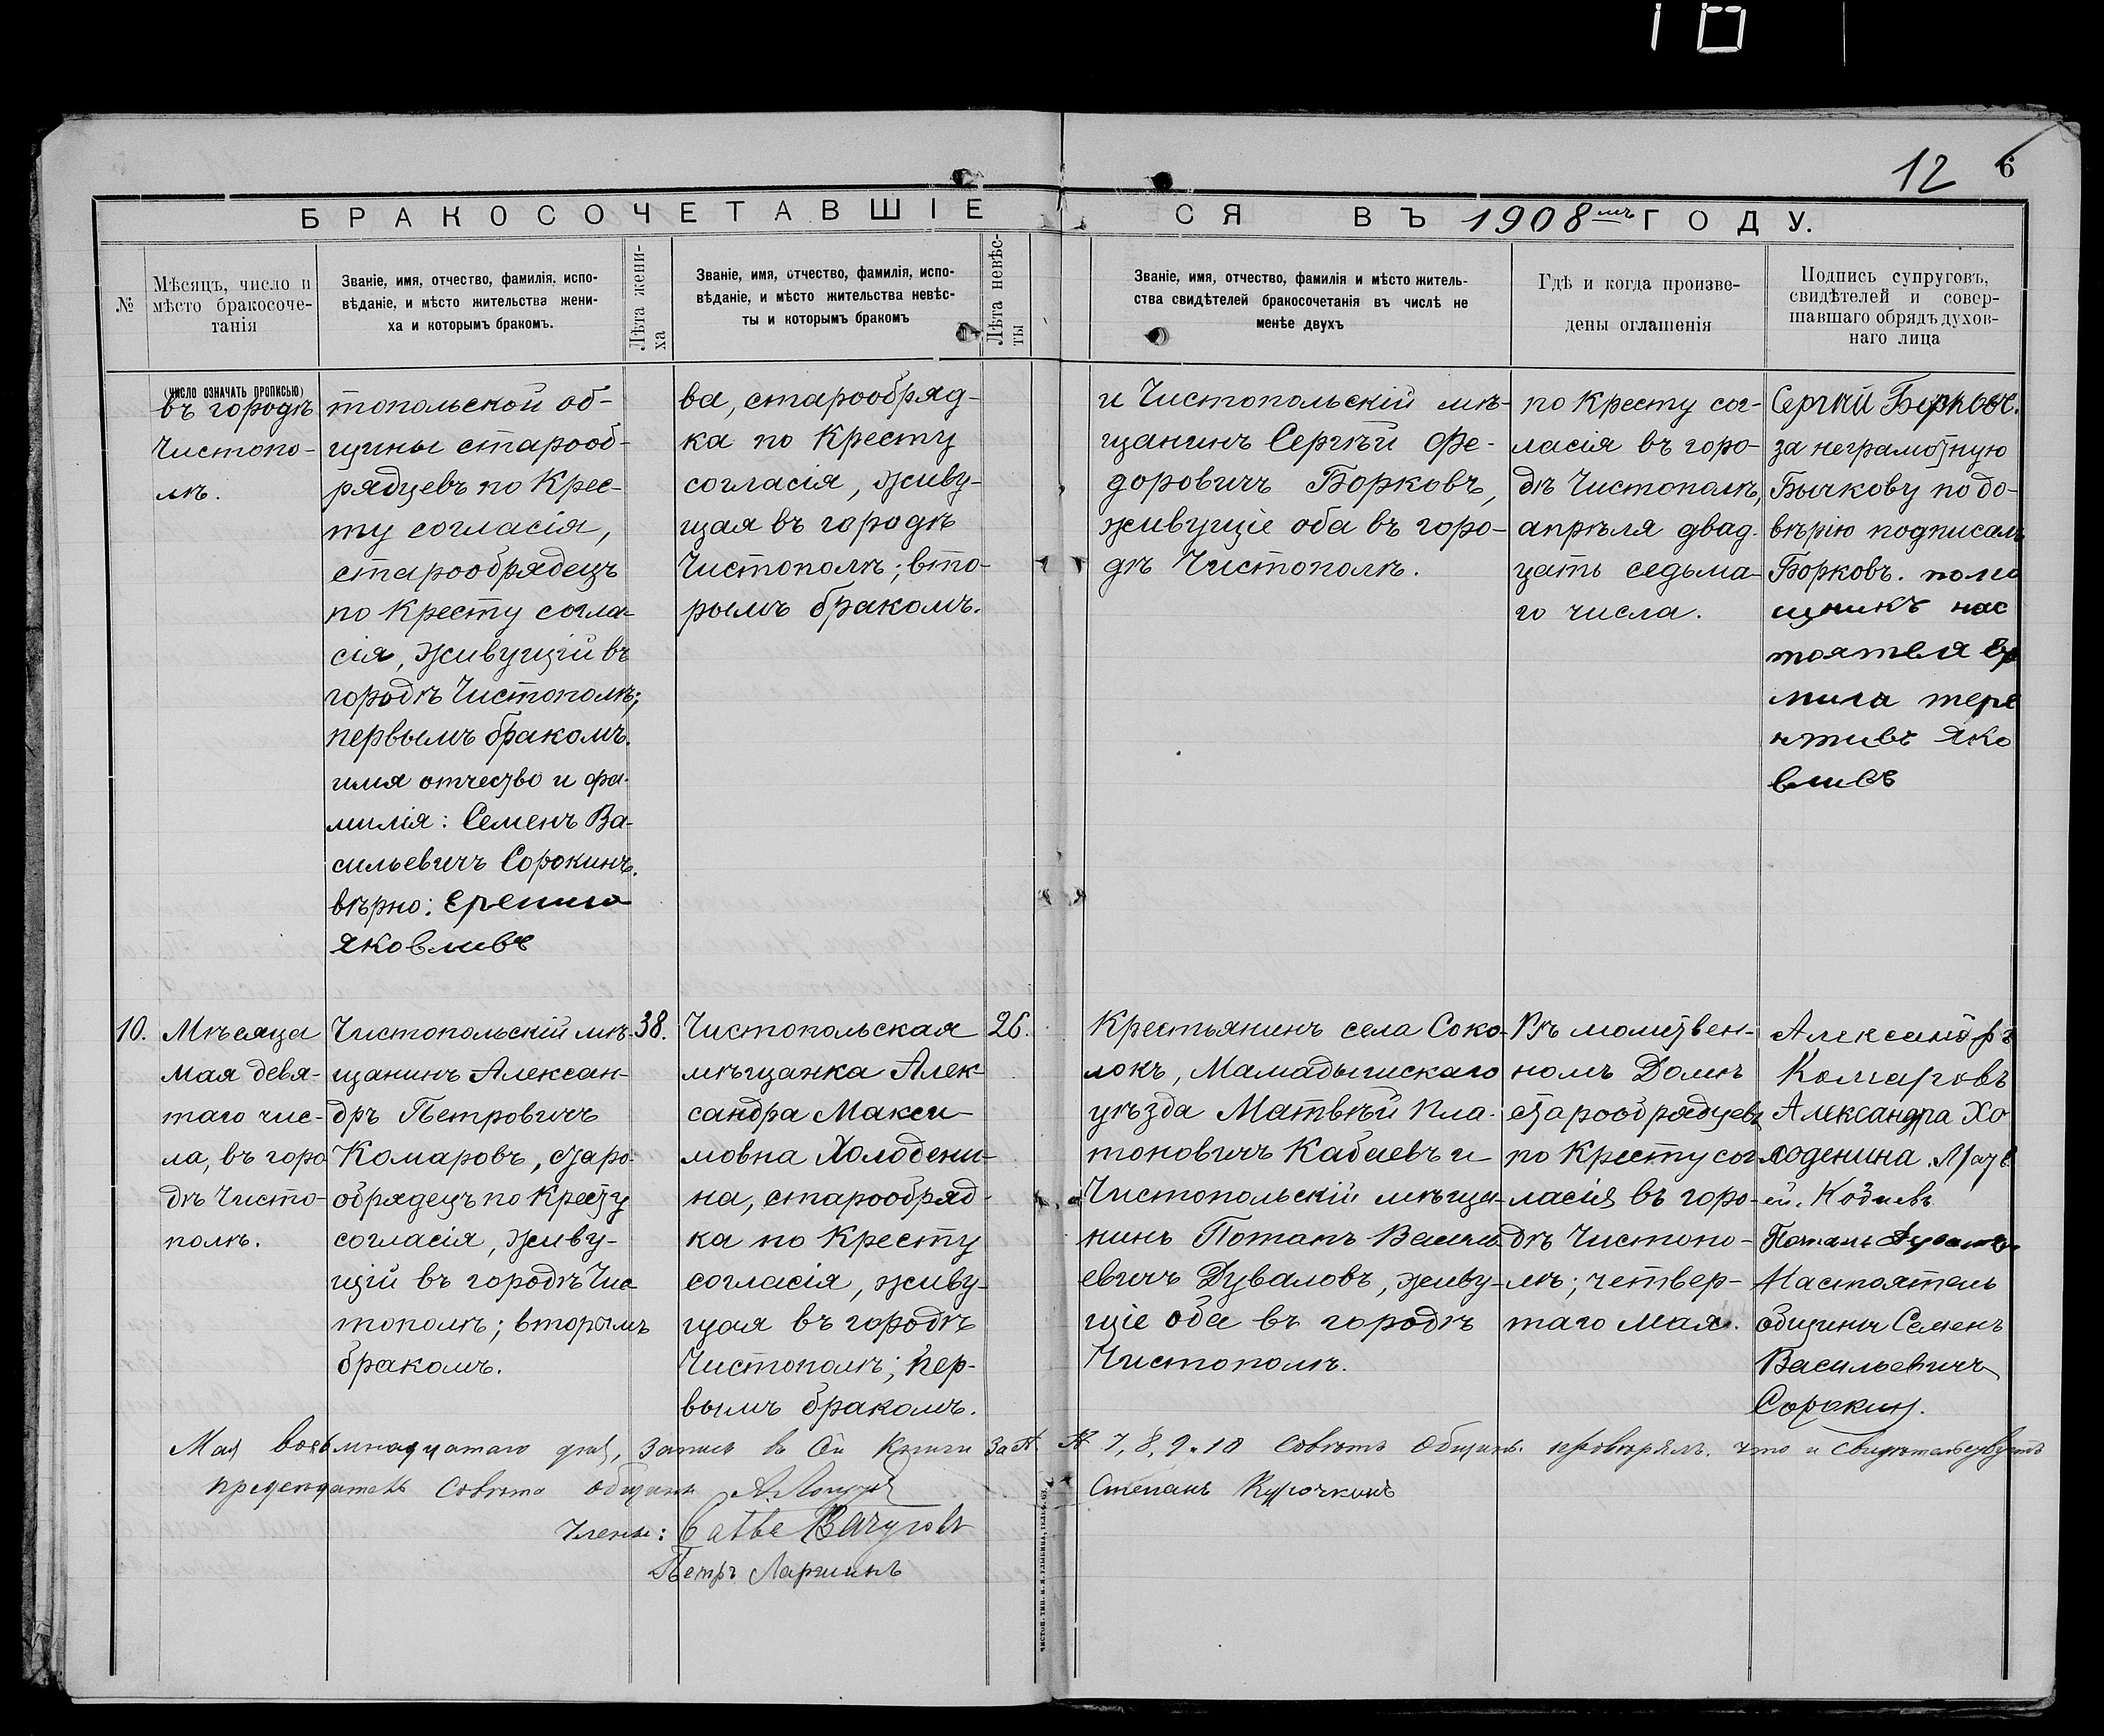 10
12 6
БРАКОСОЧЕТАВШІЕСЯ ВЪ 1908 мъ ГОДУ.
№
Мѣсяцъ, число и
мѣсто бракосоче-
танія
Званіе, имя, отчество, фамилія, испо-
вѣданіе, и мѣсто жительства жени-
ха и которымъ бракомъ.
Лѣта жени-
ха
Званіе, имя, отчество, фамилія, испо-
вѣданіе, и мѣсто жительства невѣс-
ты и которымъ бракомъ
Лѣта невѣс-
ты
Званіе, имя, отчество, фамилія и мѣсто житель-
ства свидѣтелей бракосочетанія въ числѣ не
менѣе двухъ
Гдѣ и когда произве-
дены оглашенія
Подпись супруговъ,
свидѣтелей и совер-
шавшаго обрядъ духов-
наго лица
(ЧИСЛО ОЗНАЧАТЬ ПРОПИСЬЮ)
въ городѣ
Чистопо-
лѣ.
топольской об-
щины старооб-
рядцевъ по Крес-
ту согласія,
старообрядецъ
по Кресту согла-
сія, живущій въ
городѣ Чистополѣ;
первымъ бракомъ.
имя отчество и фа-
милія: Семенъ Ва-
сильевичъ Сорокинъ.
вѣрно: Еремила
Яковливъ
ва, старообряд-
ка по Кресту
согласія, живу-
щая въ городѣ
Чистополѣ; вто-
рымъ бракомъ.
и Чистопольскій мѣ-
щанинъ Сергѣй Фе-
доровичъ Борковъ,
живущіе оба въ горо-
дѣ Чистополѣ.
по Кресту сог-
ласія въ горо-
дѣ Чистополѣ,
апрѣля двад-
цать седьма-
го числа.
Сергѣй Борковъ.
за неграмотную
Бычкову по до-
вѣрію подписалъ
Борковъ. помо
щникъ нас
тоятеля Ер
мила тере
нтивъ Яко
вливъ
10.
Мѣсяца
мая девя-
таго чис-
ла, въ горо-
дѣ Чисто-
полѣ.
Чистопольскій мѣ-
щанинъ Алексан-
дръ Петровичъ
Комаровъ, старо-
обрядецъ по Кресту
согласія, живу-
щій въ городѣ Чис-
тополѣ; вторымъ
бракомъ.
38.
Чистопольская
мѣщанка Алек-
сандра Макси-
мовна Холодени-
на, старообряд-
ка по Кресту
согласія, живу-
щая въ городѣ
Чистополѣ; пер-
вымъ бракомъ.
26.
Крестьянинъ села Соко-
локъ, Мамадышскаго
уѣзда Матвѣй Пла-
тоновичъ Кабаевъ и
Чистопольскій мѣща-
нинъ Потапъ Васил-
евичъ Дуваловъ, живу-
щіе оба въ городѣ
Чистополѣ.
Въ молитвен-
номъ Домѣ
старообрядцевъ
по Кресту сог-
ласія въ горо-
дѣ Чистопо-
лѣ; четвер-
таго мая.
Александръ
Комаровъ
Александра Хо
лоденина. Матв
ей. Кобаевъ
Потапъ
Настоятель
общины Семенъ
Васильевичъ
Сорокин.
Мая восьмнадцатаго дня, запись въ сей книги за №№ 7, 8, 9 и 10 совѣтъ общины провѣрялъ. что и свидѣтельствуетъ
председатель совѣта общины
Степанъ Курочкинъ
Члены:
Петръ Ларшинъ